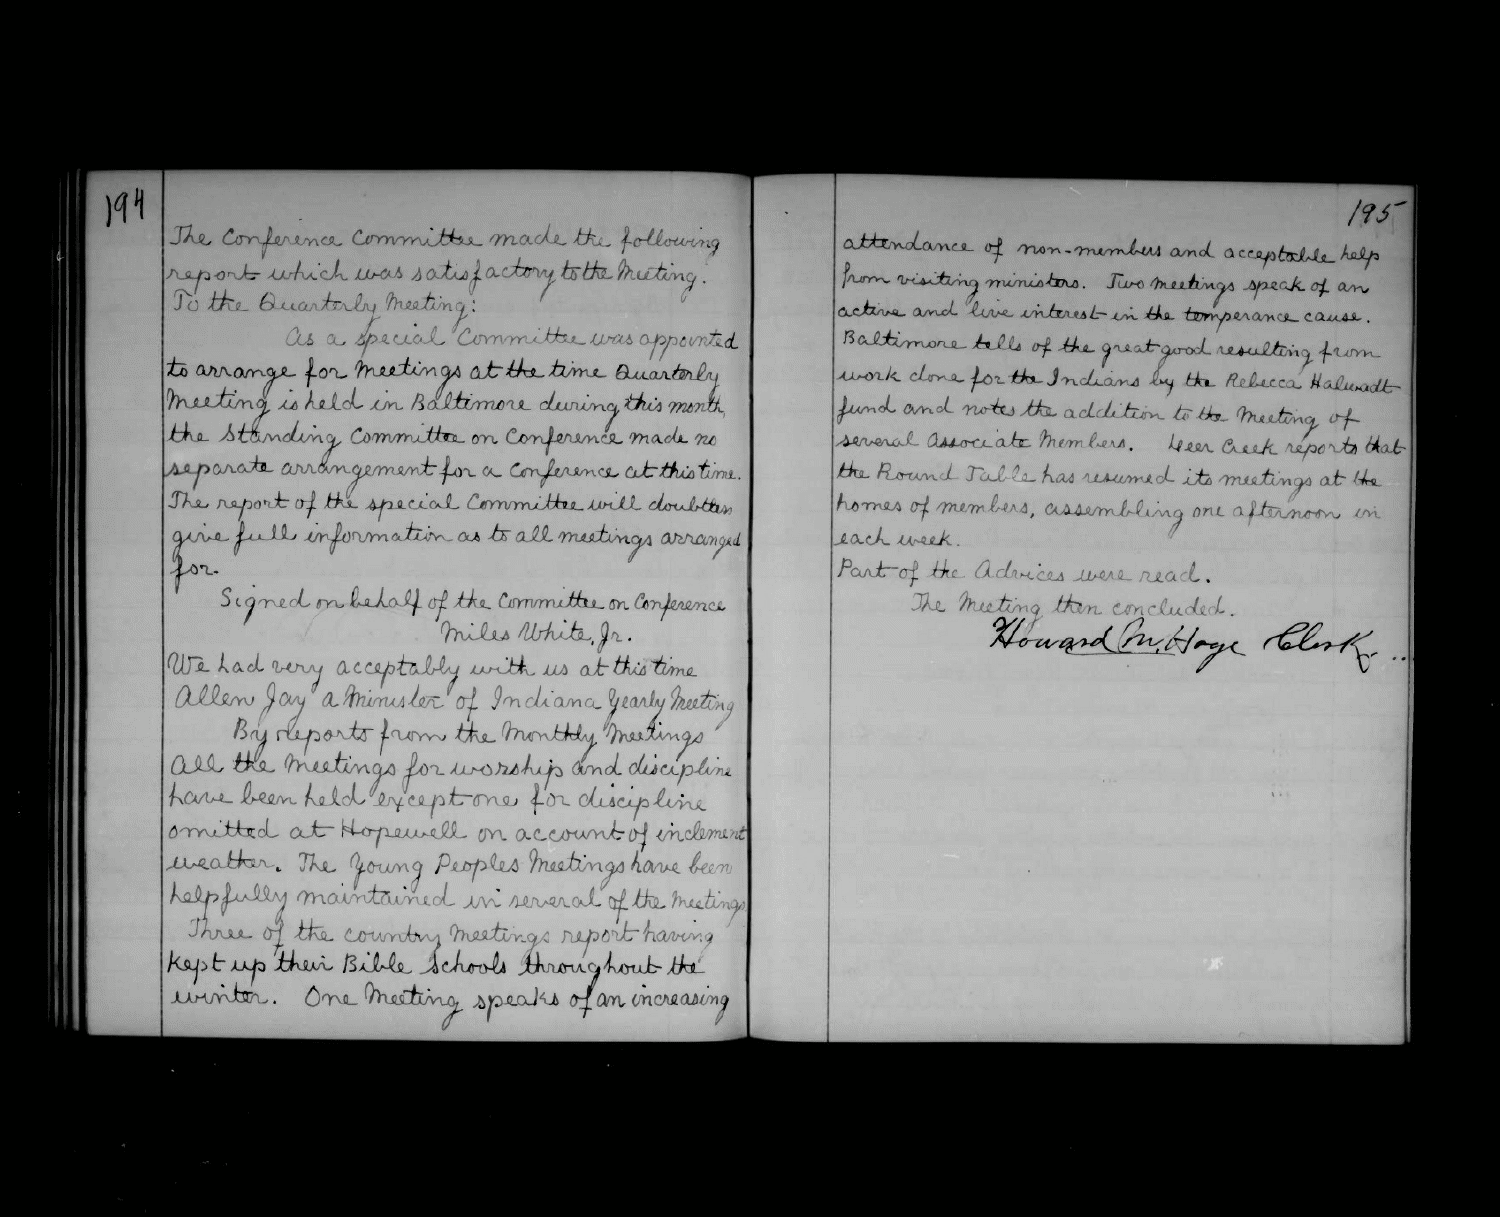 194
The Conference Committee made the following
report which was satisfactory to the Meeting.
To the Quarterly Meeting:
As a special Committee was appointed
to arrange for Meetings at the time Quarterly
Meeting is held in Baltimore during this month,
the Standing Committee on Conference made no
separate arrangement for a Conference at this time.
The report of the special Committee will doubtless
give full information as to all meetings arranged
for.
Signed on behalf of the Committee on Conference
Miles White, Jr.
We had very acceptably with us at this time
Allen Jay a Minister of Indiana Yearly Meeting
By reports from the Monthly Meetings
All the Meetings for worship and discipline
have been held except one for discipline
omitted at Hopewell on account of inclement
weather. The Young Peoples Meetings have been
helpfully maintained in several of the Meetings
Three of the country Meetings report having
kept up their Bible Schools throughout the
winter. One Meeting speaks of an increasing
195
attendance of non-members and acceptable help
from visiting ministers. Two Meetings speak of an
active and live interest in the temperance cause.
Baltimore tells of the great good resulting from
work done for the Indians by the Rebecca
fund and notes the addition to the Meeting of
several Associate Members. Deer Creek reports that
the Round Table has resumed its meetings at the
homes of members, assembling one afternoon in
each week.
Part of the Advices were read.
The Meeting then concluded.
Howard M. Hoge Clerk